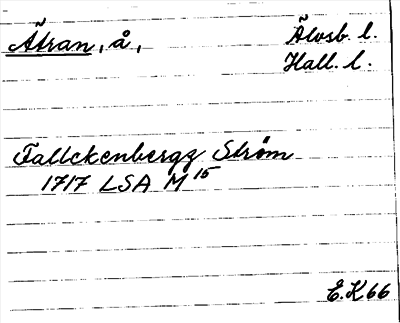 Ätran, å,
Älvsb. l.
Hall. l.
Fallckenbergz Ström
1717 LSA M 15
E.K 66